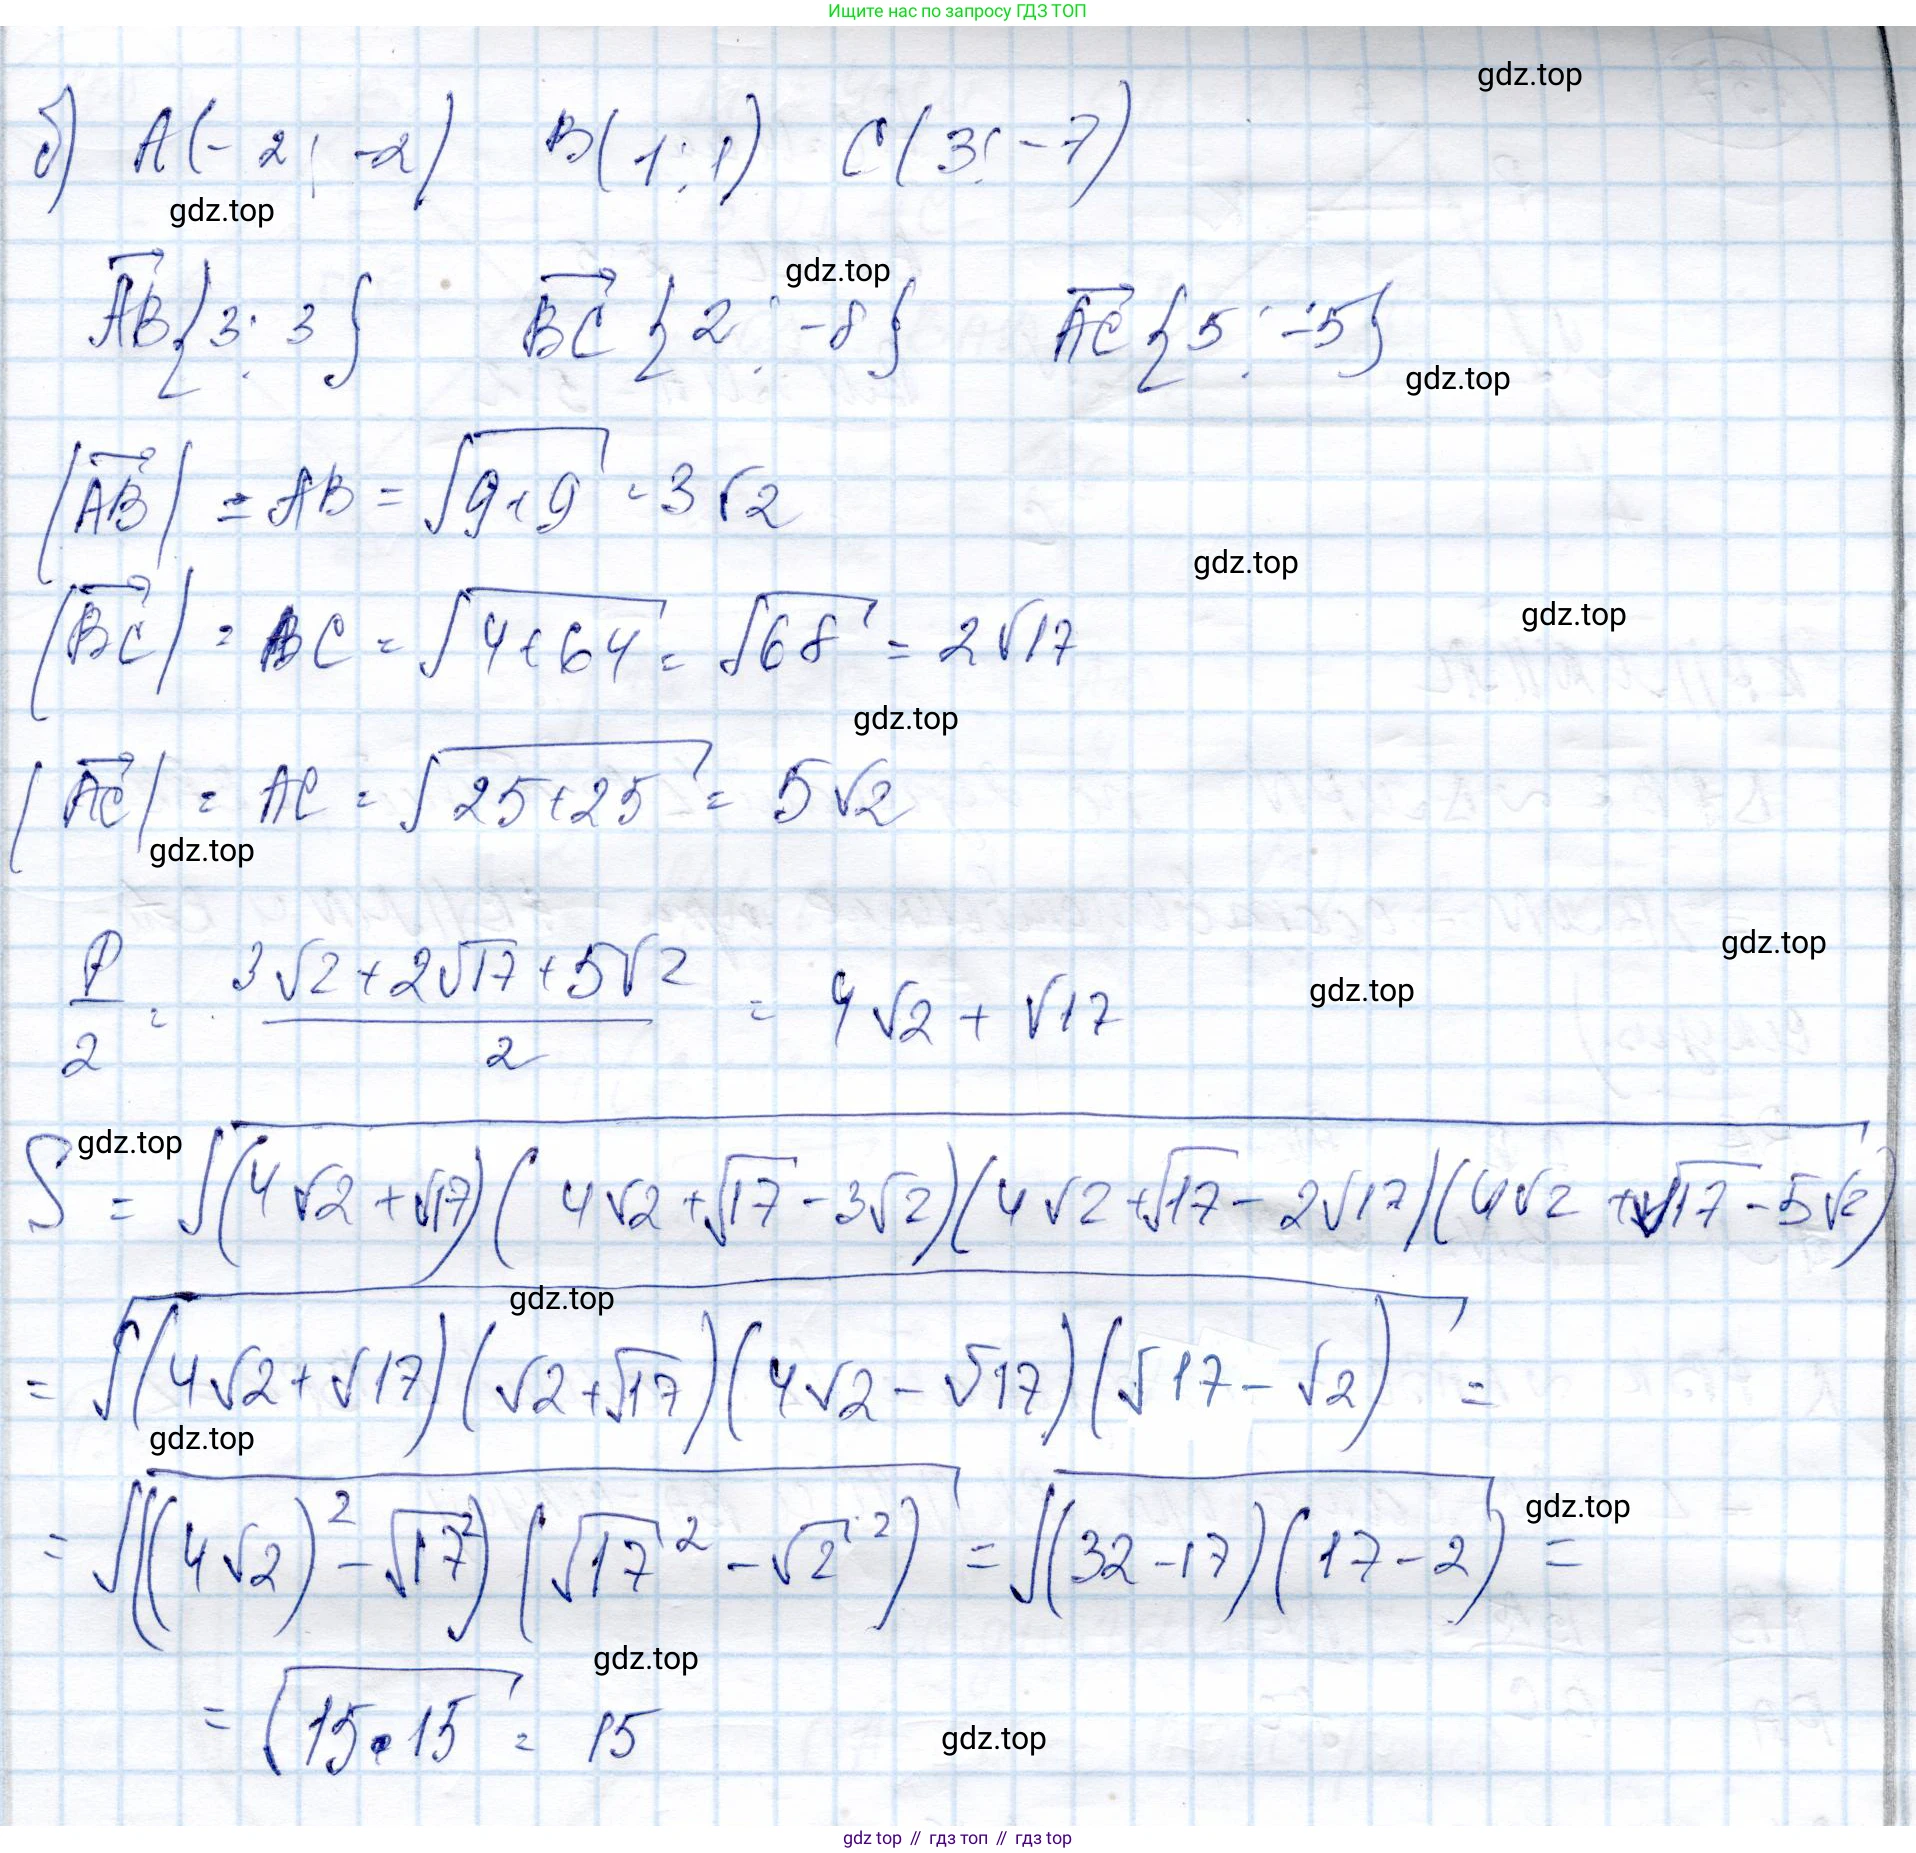 Ищите нас по запросу ГДЗ ТОП
gdz.top
б) A(-2; -2) B(1; 1) C(3; -7)
gdz.top
gdz.top
AB{3; 3} BC{2; -8} AC{5; -5}
gdz.top
|AB| = AB = √9+9 = 3√2
gdz.top
|BC| = BC = √4+64 = √68 = 2√17
gdz.top
gdz.top
|AC| = AC = √25+25 = 5√2
gdz.top
gdz.top
P/2 = (3√2+2√17+5√2)/2 = 4√2 + √17
gdz.top
gdz.top
S = √(4√2+√17)(4√2+√17-3√2)(4√2+√17-2√17)(4√2+√17-5√2)
gdz.top
= √(4√2+√17)(√2+√17)(4√2-√17)(√17-√2) =
gdz.top
gdz.top
= √((4√2)²-√17²)(√17²-√2²) = √(32-17)(17-2) =
gdz.top
= √15·15 = 15
gdz.top
gdz top // гдз топ // гдз top